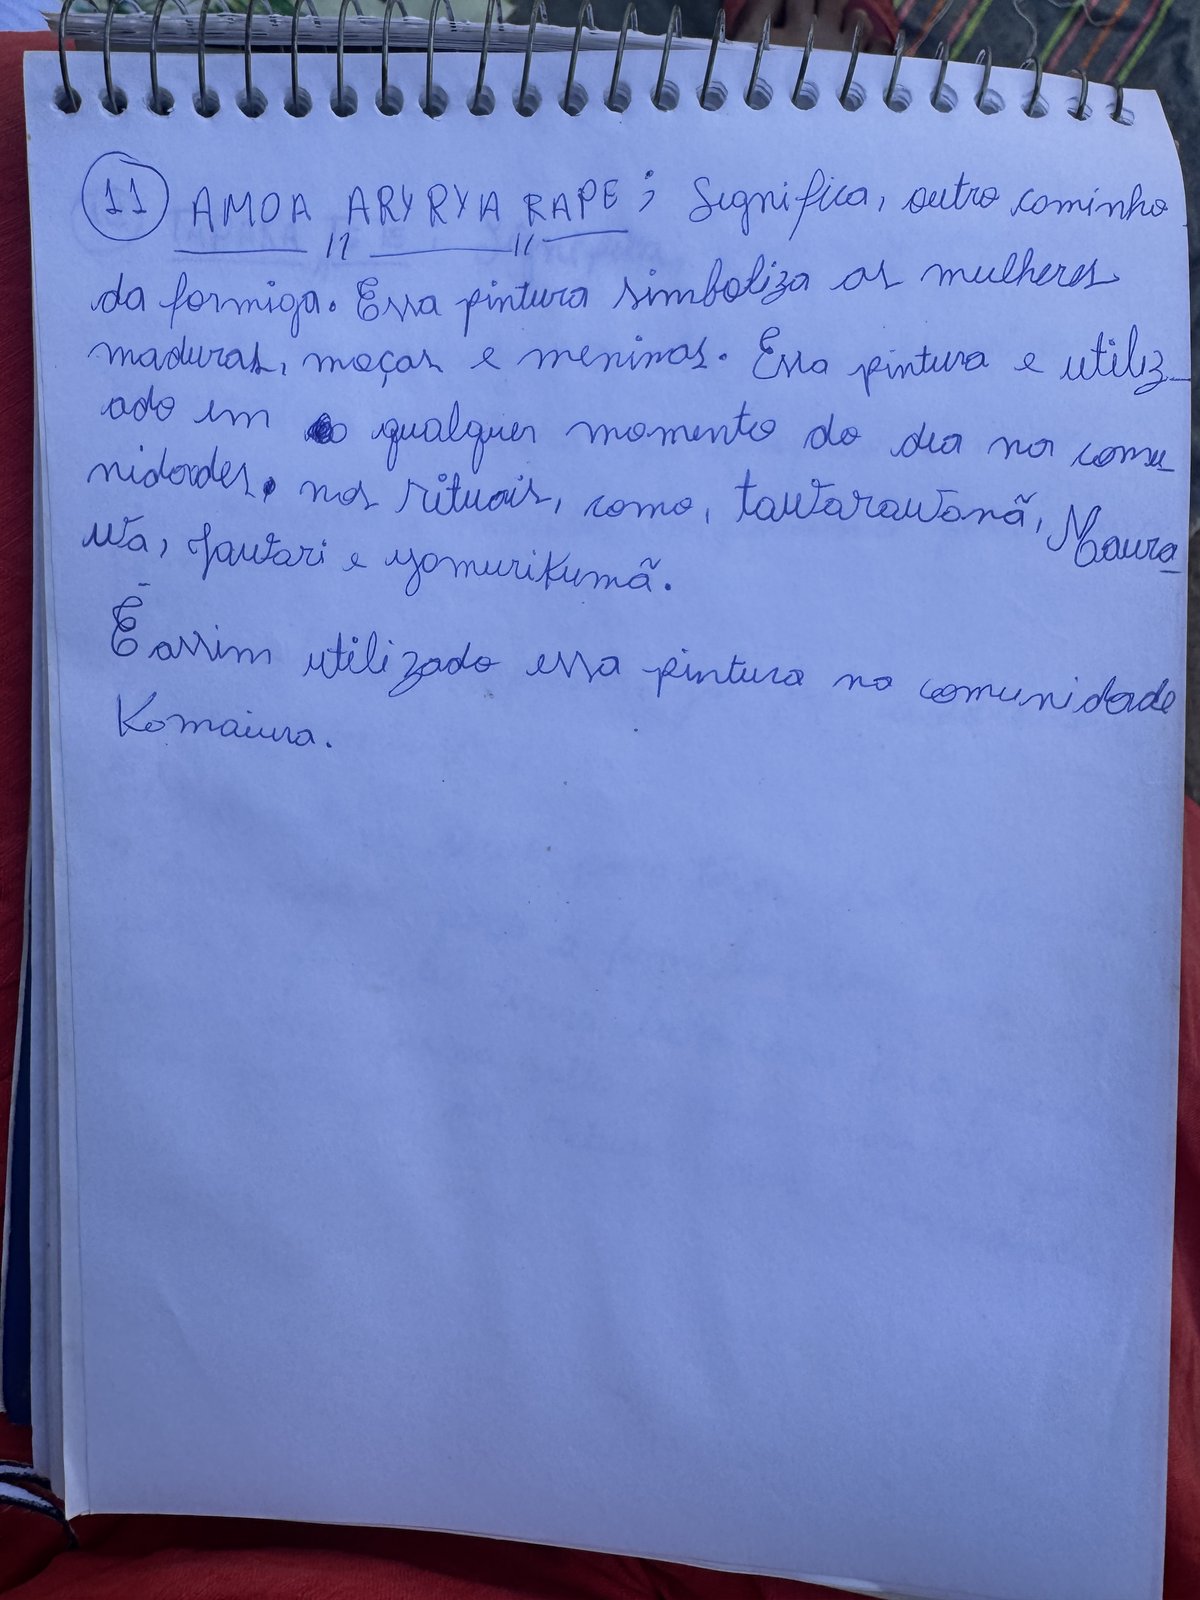 11 AMOA ARYRYA RAPE; Significa, outro caminho
da formiga. Essa pintura simboliza as mulheres
maduras, moças e meninas. Essa pintura e utiliz-
ado em qualquer momento do dia na comu
nidades, nos rituais, como, tawarawanã, Maura
wa, Jawari e yamurikumã.
É assim utilizado essa pintura na comunidade
Kamaiura.